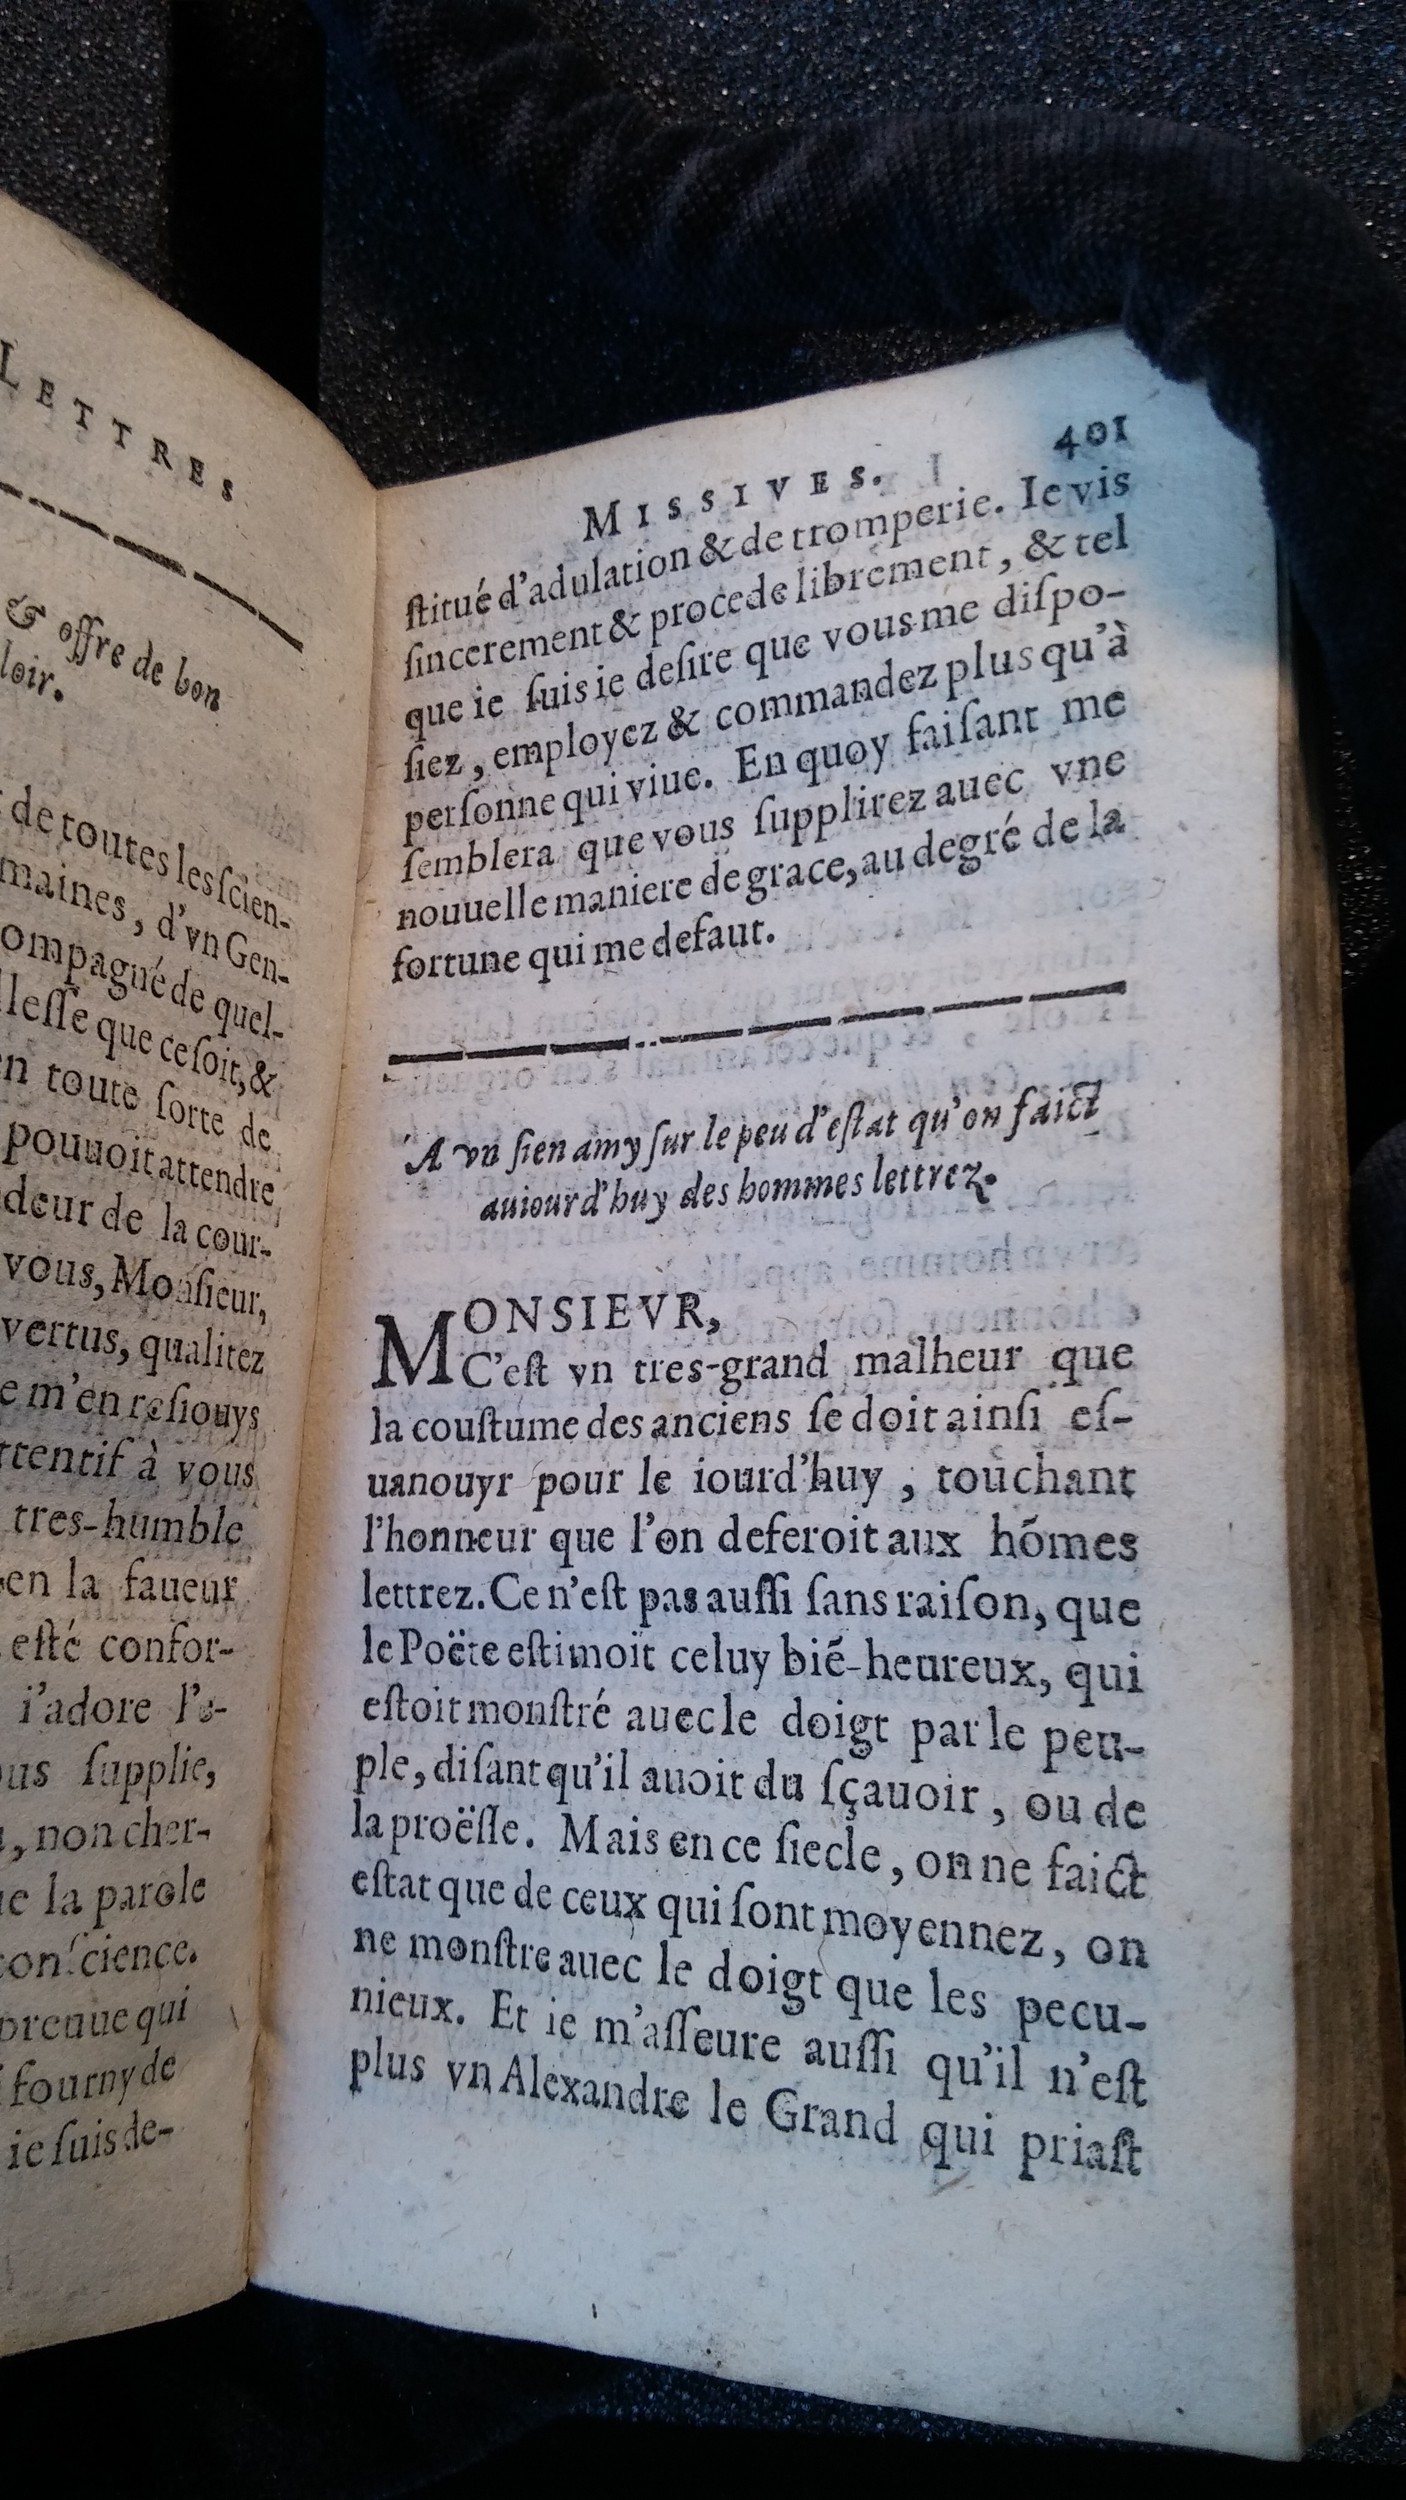 LETTRES
& offre de bon
loir.
de toutes les ſcien-
maines, d'vn Gen-
ompagné de quel-
leſſe que ce ſoit, &
n toute ſorte de
pouuoit attendre
deur de la cour-
vous, Monſieur,
vertus, qualitez
e m'en reſiouys
ttentif à vous
tres-humble
en la faueur
eſté confor-
i'adore l'e-
us ſupplie,
, non cher-
e la parole
conſcience.
preuue qui
fourny de
ie ſuis de-
MISSIVES. 401
ſtitué d'adulation & de tromperie. Ie vis
ſincerement & procede librement, & tel
que ie ſuis ie deſire que vous me diſpo-
ſiez, employez & commandez plus qu'à
perſonne qui viue. En quoy faiſant me
ſemblera que vous ſupplirez auec vne
nouuelle maniere de grace, au degré de la
fortune qui me defaut.
A vn ſien amy ſur le peu d'eſtat qu'on faict
auiourd'huy des hommes lettrez.
MONSIEVR,
C'eſt vn tres-grand malheur que
la couſtume des anciens ſe doit ainſi eſ-
uanouyr pour le iourd'huy, touchant
l'honneur que l'on deferoit aux hõmes
lettrez. Ce n'eſt pas auſſi ſans raiſon, que
le Poëte eſtimoit celuy biẽ-heureux, qui
eſtoit monſtré auec le doigt par le peu-
ple, diſant qu'il auoit du ſçauoir, ou de
la proëſſe. Mais en ce ſiecle, on ne faict
eſtat que de ceux qui ſont moyennez, on
ne monſtre auec le doigt que les pecu-
nieux. Et ie m'aſſeure auſſi qu'il n'eſt
plus vn Alexandre le Grand qui priaſt